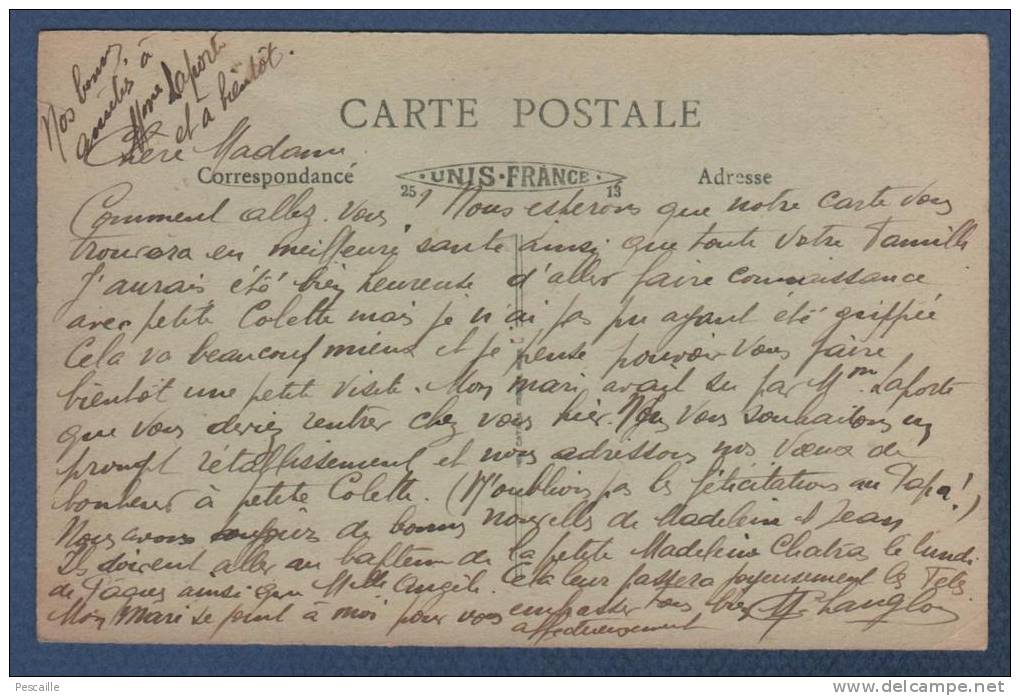 Nos bonnes
amitiés à
Mme Laporte
et à bientôt.
CARTE POSTALE
Chère Madame
Correspondance
25 UNIS-FRANCE 13
Adresse
Comment allez-vous ? Nous espérons que notre carte vous
trouvera en meilleure santé ainsi que toute votre famille
J'aurais été bien heureuse d'aller faire connaissance
avec petite Colette mais je n'ai pas pu ayant été grippée
Cela va beaucoup mieux et je pense pouvoir vous faire
bientôt une petite visite. Mon mari avait su par Mme Laporte
que vous deviez rentrer chez vous hier. Nous vous souhaitons un
prompt rétablissement et nous adressons nos vœux de
bonheur à petite Colette. (N'oublions pas les félicitations au Papa !)
Nous avons toujours de bonnes nouvelles de Madeleine et Jean
Ils doivent aller au baptême de la petite Madeleine le lundi
de Pâques ainsi que Mlle Angèle Cela leur passera joyeusement les Fêtes.
Mon Mari se joint à moi pour vous embrasser tous bien
affectueusement
Pescaille
www.delcampe.net